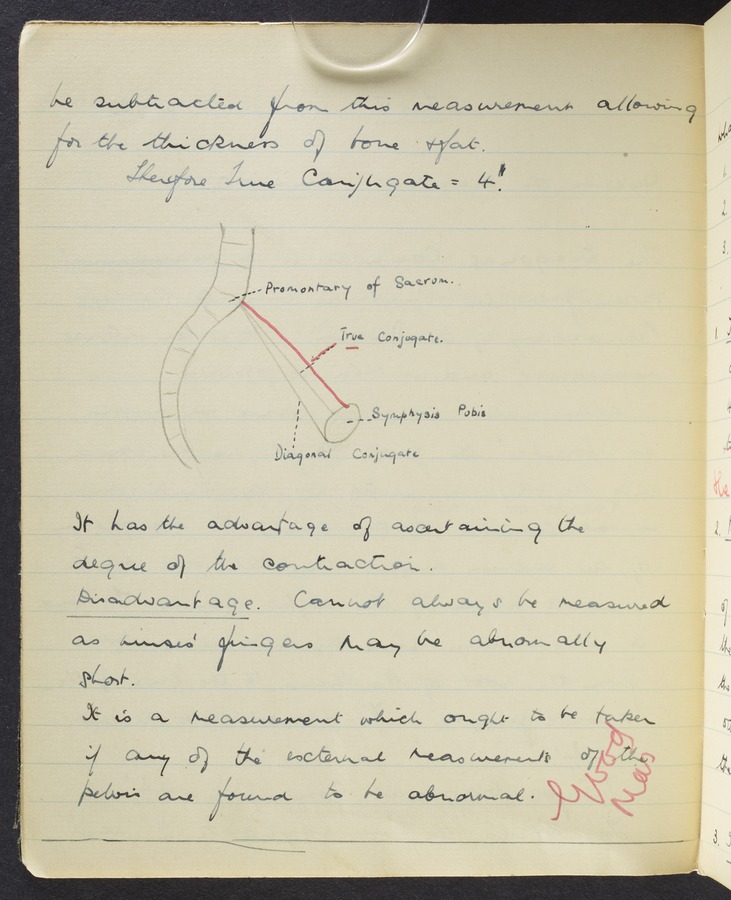 be subtracted from this measurement allowing
for the thickness of bone & fat.
Therefore True Conjugate = 4".
Promontary of Sacrum.
True Conjugate.
Symphysis Pubis
Diagonal Conjugate
It has the advantage of ascertaining the
degree of the contraction.
Disadvantage. Cannot always be measured
as nurses' fingers may be abnormally
short.
It is a measurement which ought to be taken
if any of the external measurements of the
pelvis are found to be abnormal.
Good
1.
2.
3.
1.
the
2.
of
the
the
3.